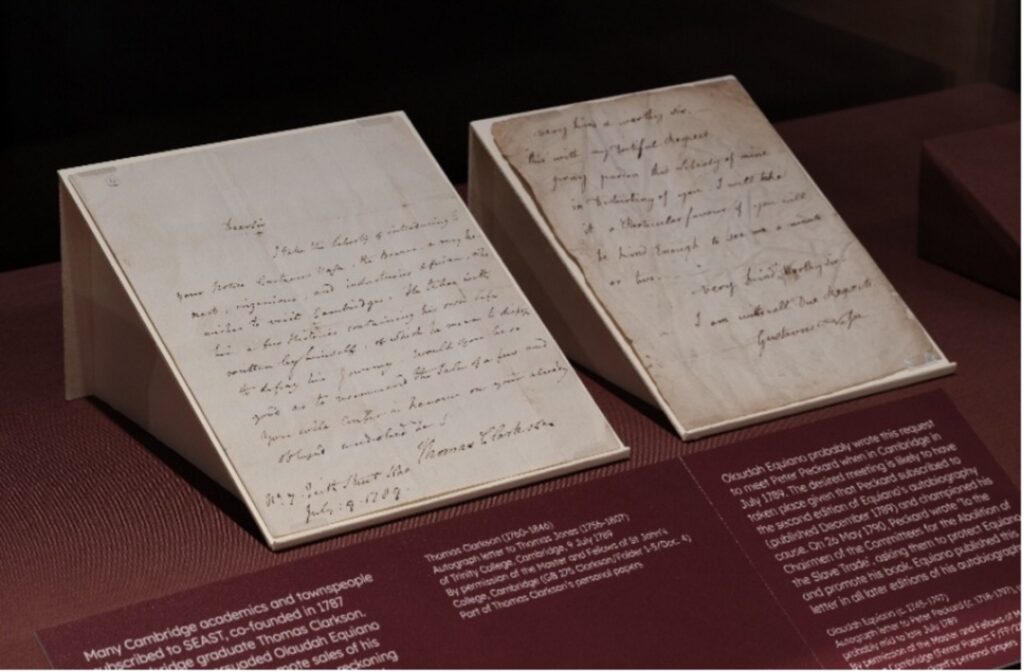 Dear Sir
I take the Liberty of introducing to
your Notice Gustavus Vasa, the Bearer, a very ho-
nest, ingenious, and industrious African, who
wishes to visit Cambridge. He takes with
him a few Histories containing his own Life
written by himself, of which he means to dispose
to defray his Journey. Would you be so
good as to recommend the Sale of a few and
you will confer a honour on your already
obliged
Thomas Clarkson
July 9. 1789.
very kind & worthy Sir.
this with my Dutiful Respect
pray pardon this Liberty of mine
in of you. I will take
it a Particular favour if you will
be kind Enough to see me a minute
or two
very kind, Worthy Sir
I am with all Due Respects
Gustavus Vasa
Many Cambridge academics and townspeople
subscribed to SEAST, co-founded in 1787
graduate Thomas Clarkson.
Olaudah Equiano
sales of his
reckoning
Thomas Clarkson (1760–1846)
Autograph letter to Thomas Jones (1756–1807)
of Trinity College, Cambridge, 9 July 1789
By permission of the Master and Fellows of St John's
College, Cambridge (GB 275 Clarkson/Folder 1-5/Doc. 4)
Part of Thomas Clarkson's personal papers
Olaudah Equiano probably wrote this request
to meet Peter Peckard when in Cambridge in
July 1789. The desired meeting is likely to have
taken place given that Peckard subscribed to
the second edition of Equiano's autobiography
(published December 1789) and championed his
cause. On 26 May 1790, Peckard wrote 'To the
Chairman of the Committees for the Abolition of
the Slave Trade', asking them to protect Equiano
and promote his book. Equiano published this
letter in all later editions of his autobiography
Olaudah Equiano (c. 1745–1797)
Autograph letter to Peter Peckard (c. 1718–1797),
probably mid to late July 1789
By permission of the Master and Fellows of
Cambridge (Ferrar Papers:
personal papers